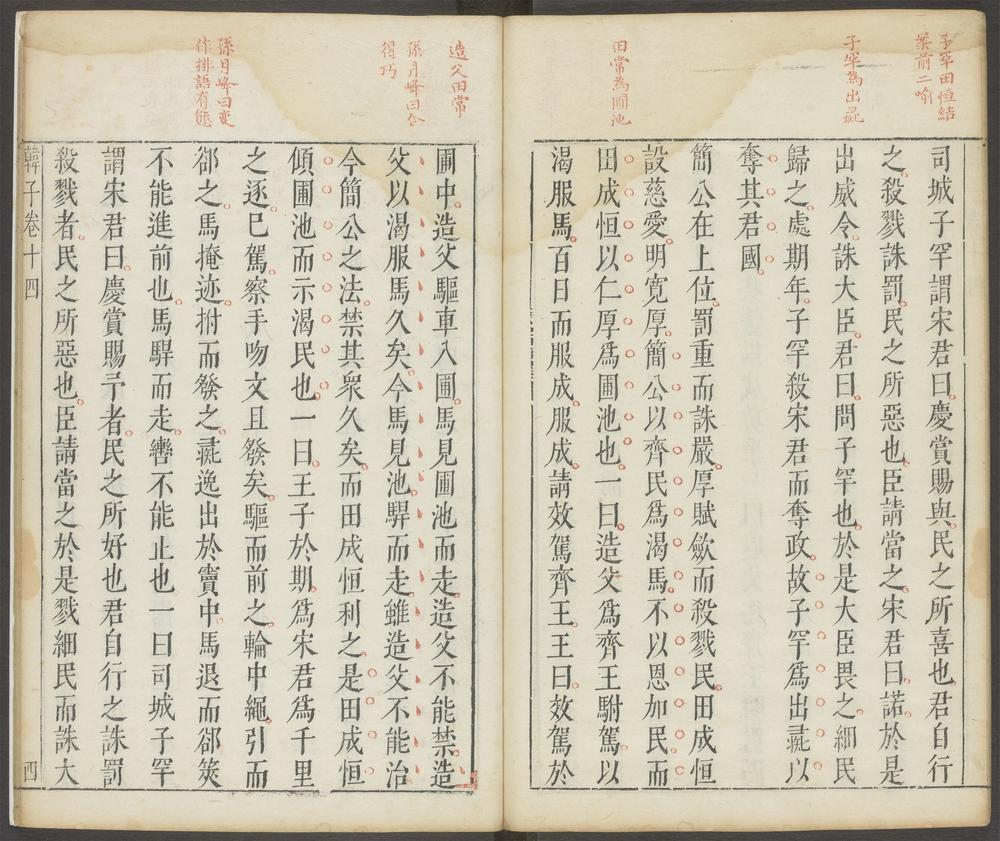 子罕田恒結
案前二喻
子罕為出彘
田常為圃池
司城子罕謂宋君曰慶賞賜與民之所喜也君自行
之殺戮誅罰民之所惡也臣請當之宋君曰諾於是
出威令誅大臣君曰問子罕也於是大臣畏之細民
歸之處期年子罕殺宋君而奪政故子罕爲出彘以
奪其君國
簡公在上位罰重而誅嚴厚賦歛而殺戮民田成恒
設慈愛明寬厚簡公以齊民爲渴馬不以恩加民而
田成恒以仁厚爲圃池也一曰造父爲齊王駙駕以
渴服馬百日而服成服成請效駕齊王王曰效駕於
造父田常
孫月峰曰合
得巧
孫月峰曰变
作排語有態
圃中造父驅車入圃馬見圃池而走造父不能禁造
父以渴服馬久矣今馬見池駻而走雖造父不能治
今簡公之法禁其衆久矣而田成恒利之是田成恒
傾圃池而示渴民也一曰王子於期爲宋君爲千里
之逐已駕察手吻文且發矣驅而前之輪中繩引而
郤之馬掩迹拊而發之彘逸出於竇中馬退而郤筴
不能進前也馬駻而走轡不能止也一曰司城子罕
謂宋君曰慶賞賜予者民之所好也君自行之誅罰
殺戮者民之所惡也臣請當之於是戮細民而誅大
韓子卷十四
四